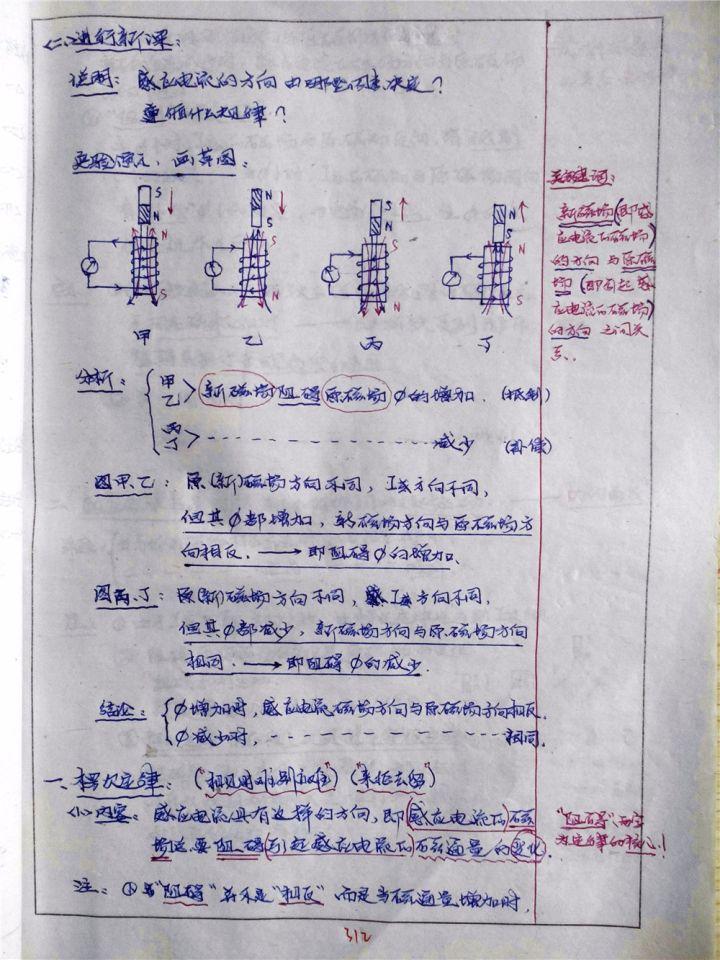 <二>、进行新课：
说明：感应电流的方向由哪些因素决定？
遵循什么规律？
实验演示，画草图：
S N N S
N S S N
S N N S
N S S N
甲 乙 丙 丁
关键词：
新磁场(即感
应电流的磁场)
的方向与原磁
场(即引起感
应电流的磁场)
的方向之间关
系.
分析：
甲
乙 > 新磁场阻碍原磁场φ的增加.(抵制)
丙
丁 > - - - - - - - - 减少 (补偿)
图甲、乙：原(新)磁场方向不同，I感方向不同，
但其φ都增加，新磁场方向与原磁场方
向相反. → 即阻碍φ的增加.
图丙、丁：原(新)磁场方向不同，I感方向不同，
但其φ都减少，新磁场方向与原磁场方向
相同. → 即阻碍φ的减少.
结论：φ增加时，感应电流磁场方向与原磁场方向相反.
φ减少时，- - - - - - - - - - 相同.
一、楞次定律：("相见时难别亦难")("来拒去留")
<1>内容：感应电流具有这样的方向，即感应电流的磁
场总要阻碍引起感应电流的磁通量的变化.
"阻碍"两字
为定律的核心！
注：①"阻碍"并不是"相反"，而是当磁通量增加时，
312